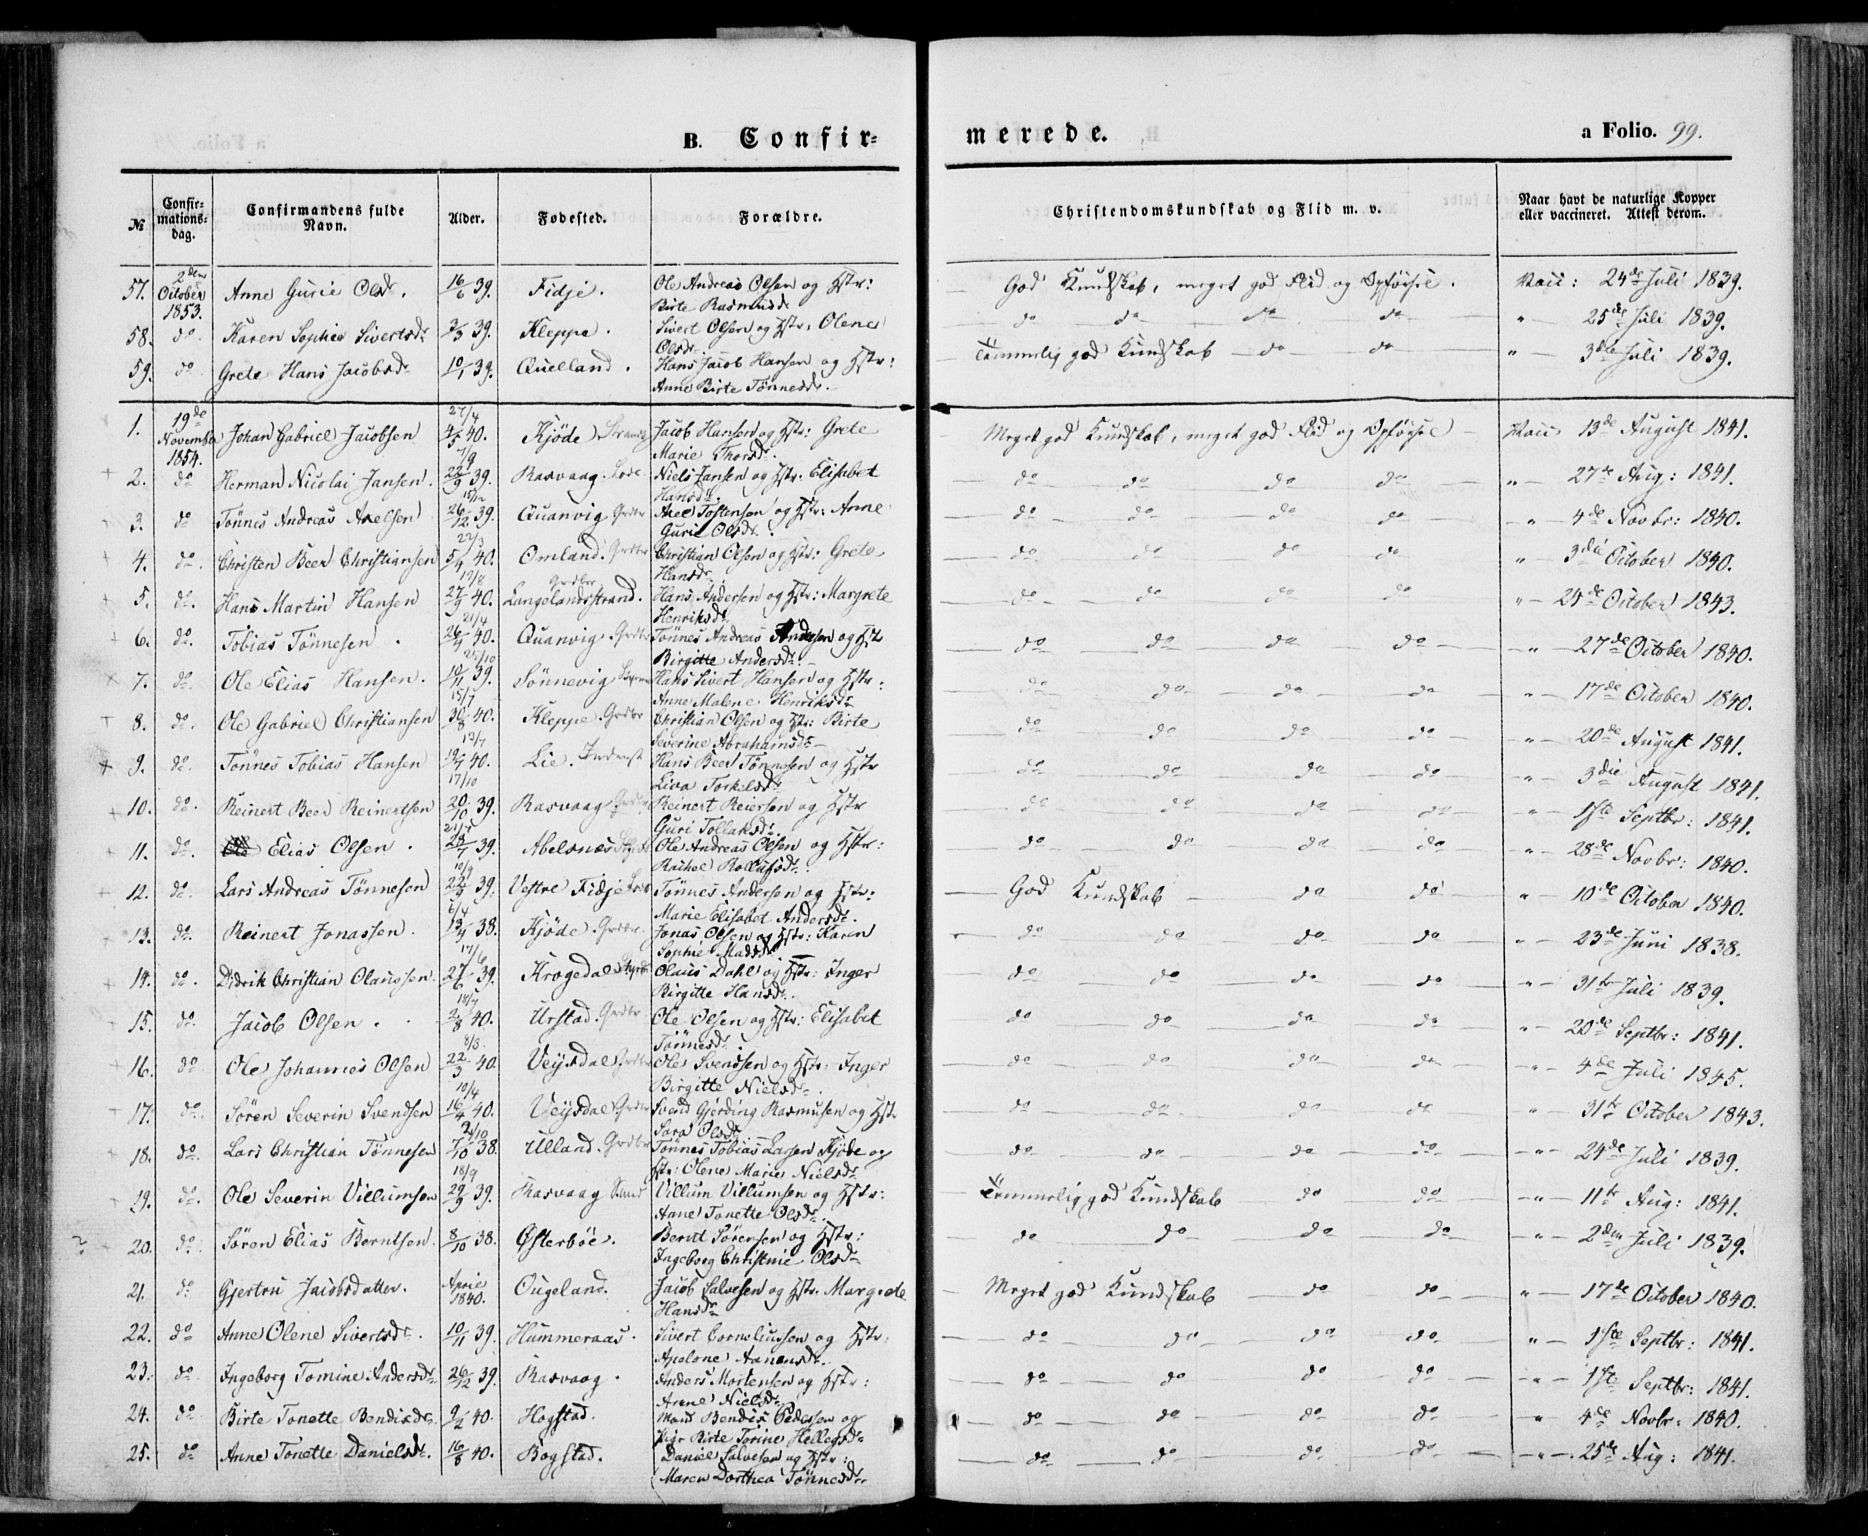 B. Confir- merede. a Folio. 99.
№ Confirmations-dag. Confirmandens fulde Navn. Alder. Fødested. Forældre. Christendomskundskab og Flid m. v. Naar havt de naturlige Kopper eller vaccineret. Attest derom.
57. 2den October 1853. Anne Gurie Olsdr. 16/6 39. Fidje. Ole Andreas Olsen og Hstr: Birte Rasmusdr God Kundskab, meget god Flid og Opførsel. Vacc: 24de Juli 1839.
58. do Karen Sophie Sivertsdr 3/3 39. Kleppe. Sivert Olsen og Hstr: Olene Olsdr. do do do do " 25de Juli 1839.
59. do Grete Hans Jacobsdr 10/1 39. Quelland. Hans Jacob Hansen og Hstr: Anne Birte Tønnesdr. Temmelig god Kundskab do do " 3die Juli 1839.
1. 19de November 1854. Johan Gabriel Jacobsen 27/4 4/5 40. Kjøde Jacob Hansen og Hstr: Grete Marie Thorsdr. Meget god Kundskab, meget god Flid og Opførsel Vacc 13de August 1841.
2. do Herman Nicolai Jansen. 7/9 22/9 39. Rasvaag. Niels Jansen og Hstr. Elisabet Hansdr. do do do do " 27de Aug: 1841.
3. do Tønnes Andreas Axelsen 26/12 39. Quanvig Grdbr Axel Tostensen og Hstr: Anne Gurie Olsdr. do do do do " 4de Novbr: 1840.
4. do. Christen Beer Christiansen 27/3 5/4 40. Omland. Grdbr Christian Olsen og Hstr: Grete Hansdr do do do do " 3die October 1840.
5. do. Hans Martin Hansen 19/8 27/9 40. Langelandsstrand. Grdbr Hans Andersen og Hstr: Margrete Henriksdr do do do do " 24de October 1843.
6. do. Tobias Tønnesen. 21/4 26/4 40. Quanvig. Grdbr Tønnes Andreas Andersen og Hstr Birgitte Andersdr. do do do do " 27de October 1840.
7. do. Ole Elias Hansen. 25/10 10/11 39. Sønnevig Hans Sivert Hansen og Hstr: Anne Malene Henriksdr do do do do " 17de October 1840.
8. do. Ole Gabriel Christiansen 15/7 30/8 40. Kleppe. Grdbr Christian Olsen og Hstr: Birte Severine Abrahamsdr do do do do " 20de August 1841.
9. do. Tønnes Tobias Hansen 13/7 19/7 40. Lie. Hans Beer Tønnesen og Hstr Liva Torkelsdr do do do do " 3die August 1841.
10. do. Reinert Beer Reinertsen 17/10 20/10 39. Rasvaag Grdbr Reinert Reiersen og Hstr Guri Tollaksdr. do do do do " 1ste Septbr: 1841.
11. do. Elias Olsen. 39. Abelsnes Ole Andreas Olsen og Hstr: Rachel Rollufsdr. do do do do " 28de Novbr: 1840.
12. do. Lars Andreas Tønnesen 10/9 22/9 39. Vestre Fidje Tønnes Andersen og Hstr: Marie Elisabet Andersdr. God Kundskab do do " 10de October 1840.
13. do. Reinert Jonassen. 6/4 38. Kjøde. Grdbr. Jonas Olsen og Hstr: Karen Sophie Madsdr do do do do " 23de Juni 1838.
14. do. Didrik Christian Olaussen. 17/6 27/6 39. Krogedal Olaus Dahl og Hstr: Inger Birgitte Hansdr. do do do do " 31te Juli 1839.
15. do. Jacob Olsen. 18/7 2/8 40. Urstad. Grdbr Ole Olsen og Hstr: Elisabet Tønnesdr. do do do do " 20de Septbr: 1841.
16. do. Ole Johannes Olsen 8/3 22/3 40. Veysdal Grdbr Ole Svendsen og Hstr: Inger Birgitte Nielsdr. do do do do " 4de Juli 1845.
17. do. Søren Severin Svendsen 10/4 16/4 40. Veysdal Grdbr Svend Gjerding Rasmusen og Hstr Sara Olsdr do do do do " 31te October 1843.
18. do. Lars Christian Tønnesen 2/10 7/10 38. Ulland. Grdbr Tønnes Tobias Larsen Kjøde og Hstr: Olene Marie Nielsdr do do do do " 24de Juli 1839.
19. do. Ole Severin Villumsen 18/9 29/9 39. Rasvaag Villum Villumsen og Hstr: Anne Tonette Olsdr. Temmelig god Kundskab do do " 11te Aug: 1841.
20. do. Søren Elias Berntsen. 8/10 38. Østerbøe. Bernt Sørensen og Hstr: Ingeborg Christine Olsdr do do do do " 2den Juli 1839.
21. do Gjertru Jacobsdatter. April 1840. Ougeland. Jacob Salvesen og Hstr. Margrete Hansdr Meget god Kundskab do do " 17de October 1840.
22. do Anne Olene Sivertsdr. 10/11 39. Hummeraas. Sivert Corneliussen og Hstr: Apelone Aanensdr. do do do do " 1ste Septbr: 1841.
23. do. Ingeborg Tomine Andersdr 26/12 39. Rasvaag. Anders Mortensen og Hstr: Anne Nielsdr. do do do do " 1ste Septbr: 1841.
24. do Birte Tonette Bendixdr. 9/2 40. Hogstad. Bendix Pedersen og Pige Birte Torine Hellegsdr do do do do " 4de Novbr: 1840.
25. do Anne Tonette Danielsdr. 16/8 40. Bogstad. Daniel Salvesen og Hstr: Maren Dorthea Tønnesdr. do do do do " 25de Aug: 1841.